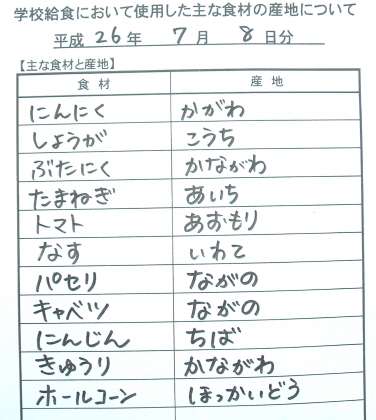 学校給食において使用した主な食材の産地について
平成 26 年 7 月 8 日分
【主な食材と産地】
食材 産地
にんにく かがわ
しょうが こうち
ぶたにく かながわ
たまねぎ あいち
トマト あおもり
なす いわて
パセリ ながの
キャベツ ながの
にんじん ちば
きゅうり かながわ
ホールコーン ほっかいどう